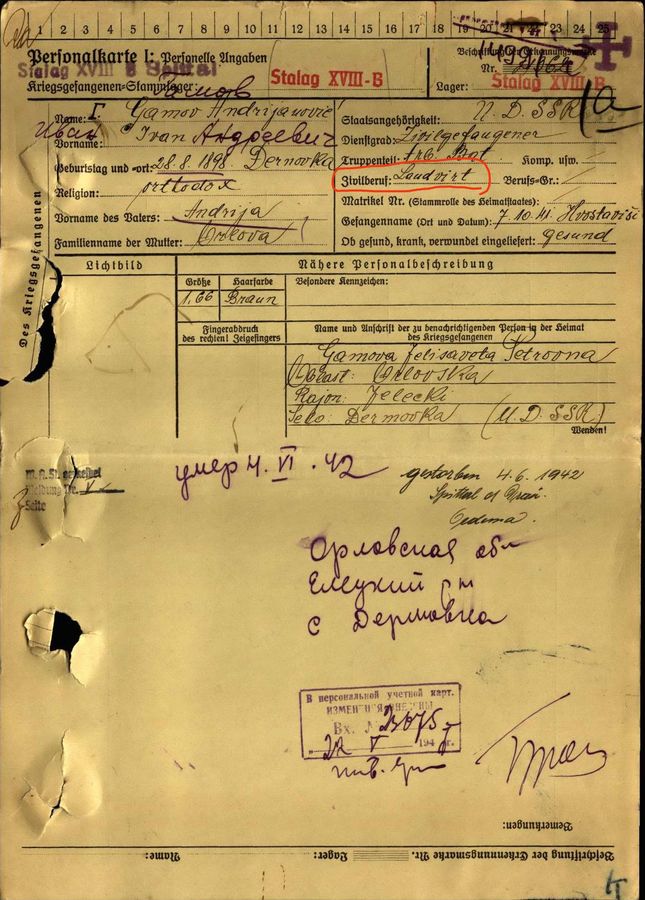 1 2 3 4 5 6 7 8 9 10 11 12 13 14 15 16 17 18 19 20 21 22 23 24 25
Personalkarte I: Personelle Angaben
Beschriftung der Erkennungsmarke
Stalag XVIII B Spittal
Stalag XVIII-B
Nr.
Kriegsgefangenen-Stammlager:
Гамов
Lager: Stalag XVIII-B
1a
Des Kriegsgefangenen
Name: Gamov Andrijanović
Staatsangehörigkeit: U.D.SSR
Иван Андреевич
Vorname: Ivan
Dienstgrad: Zivilgefangener
Truppenteil: Arb. Bat. Komp. usw.
Geburtstag und -ort: 28.8.1898 Dernovka
Zivilberuf: Landvirt Berufs-Gr.:
Religion: orttodox
Matrikel Nr. (Stammrolle des Heimatstaates):
Vorname des Vaters: Andrija
Gefangenname (Ort und Datum): 7.10.41
Familienname der Mutter: Orlova
Ob gesund, krank, verwundet eingeliefert: gesund
Lichtbild
Nähere Personalbeschreibung
Größe Haarfarbe Besondere Kennzeichen:
1,66 Braun
Fingerabdruck des rechten! Zeigefingers
Name und Anschrift der zu benachrichtigenden Person in der Heimat
des Kriegsgefangenen
Gamova Jelisaveta Petrovna
Oblast: Orlovska
Rajon: Jelecki
Selo: Dermovka (U.D.SSR)
Wenden!
умер 4.VI.42
gestorben 4.6.1942
Spittal a/Drau.
Oedema.
Seite
Орловская обл
Елецкий рн
с Дермовка
В персональной учетной карт.
ИЗМЕНЕНИЯ ВНЕСЕНЫ
Вх. №
194 г.
Bemerkungen:
Beschriftung der Erkennungsmarke Nr. Lager: Name: